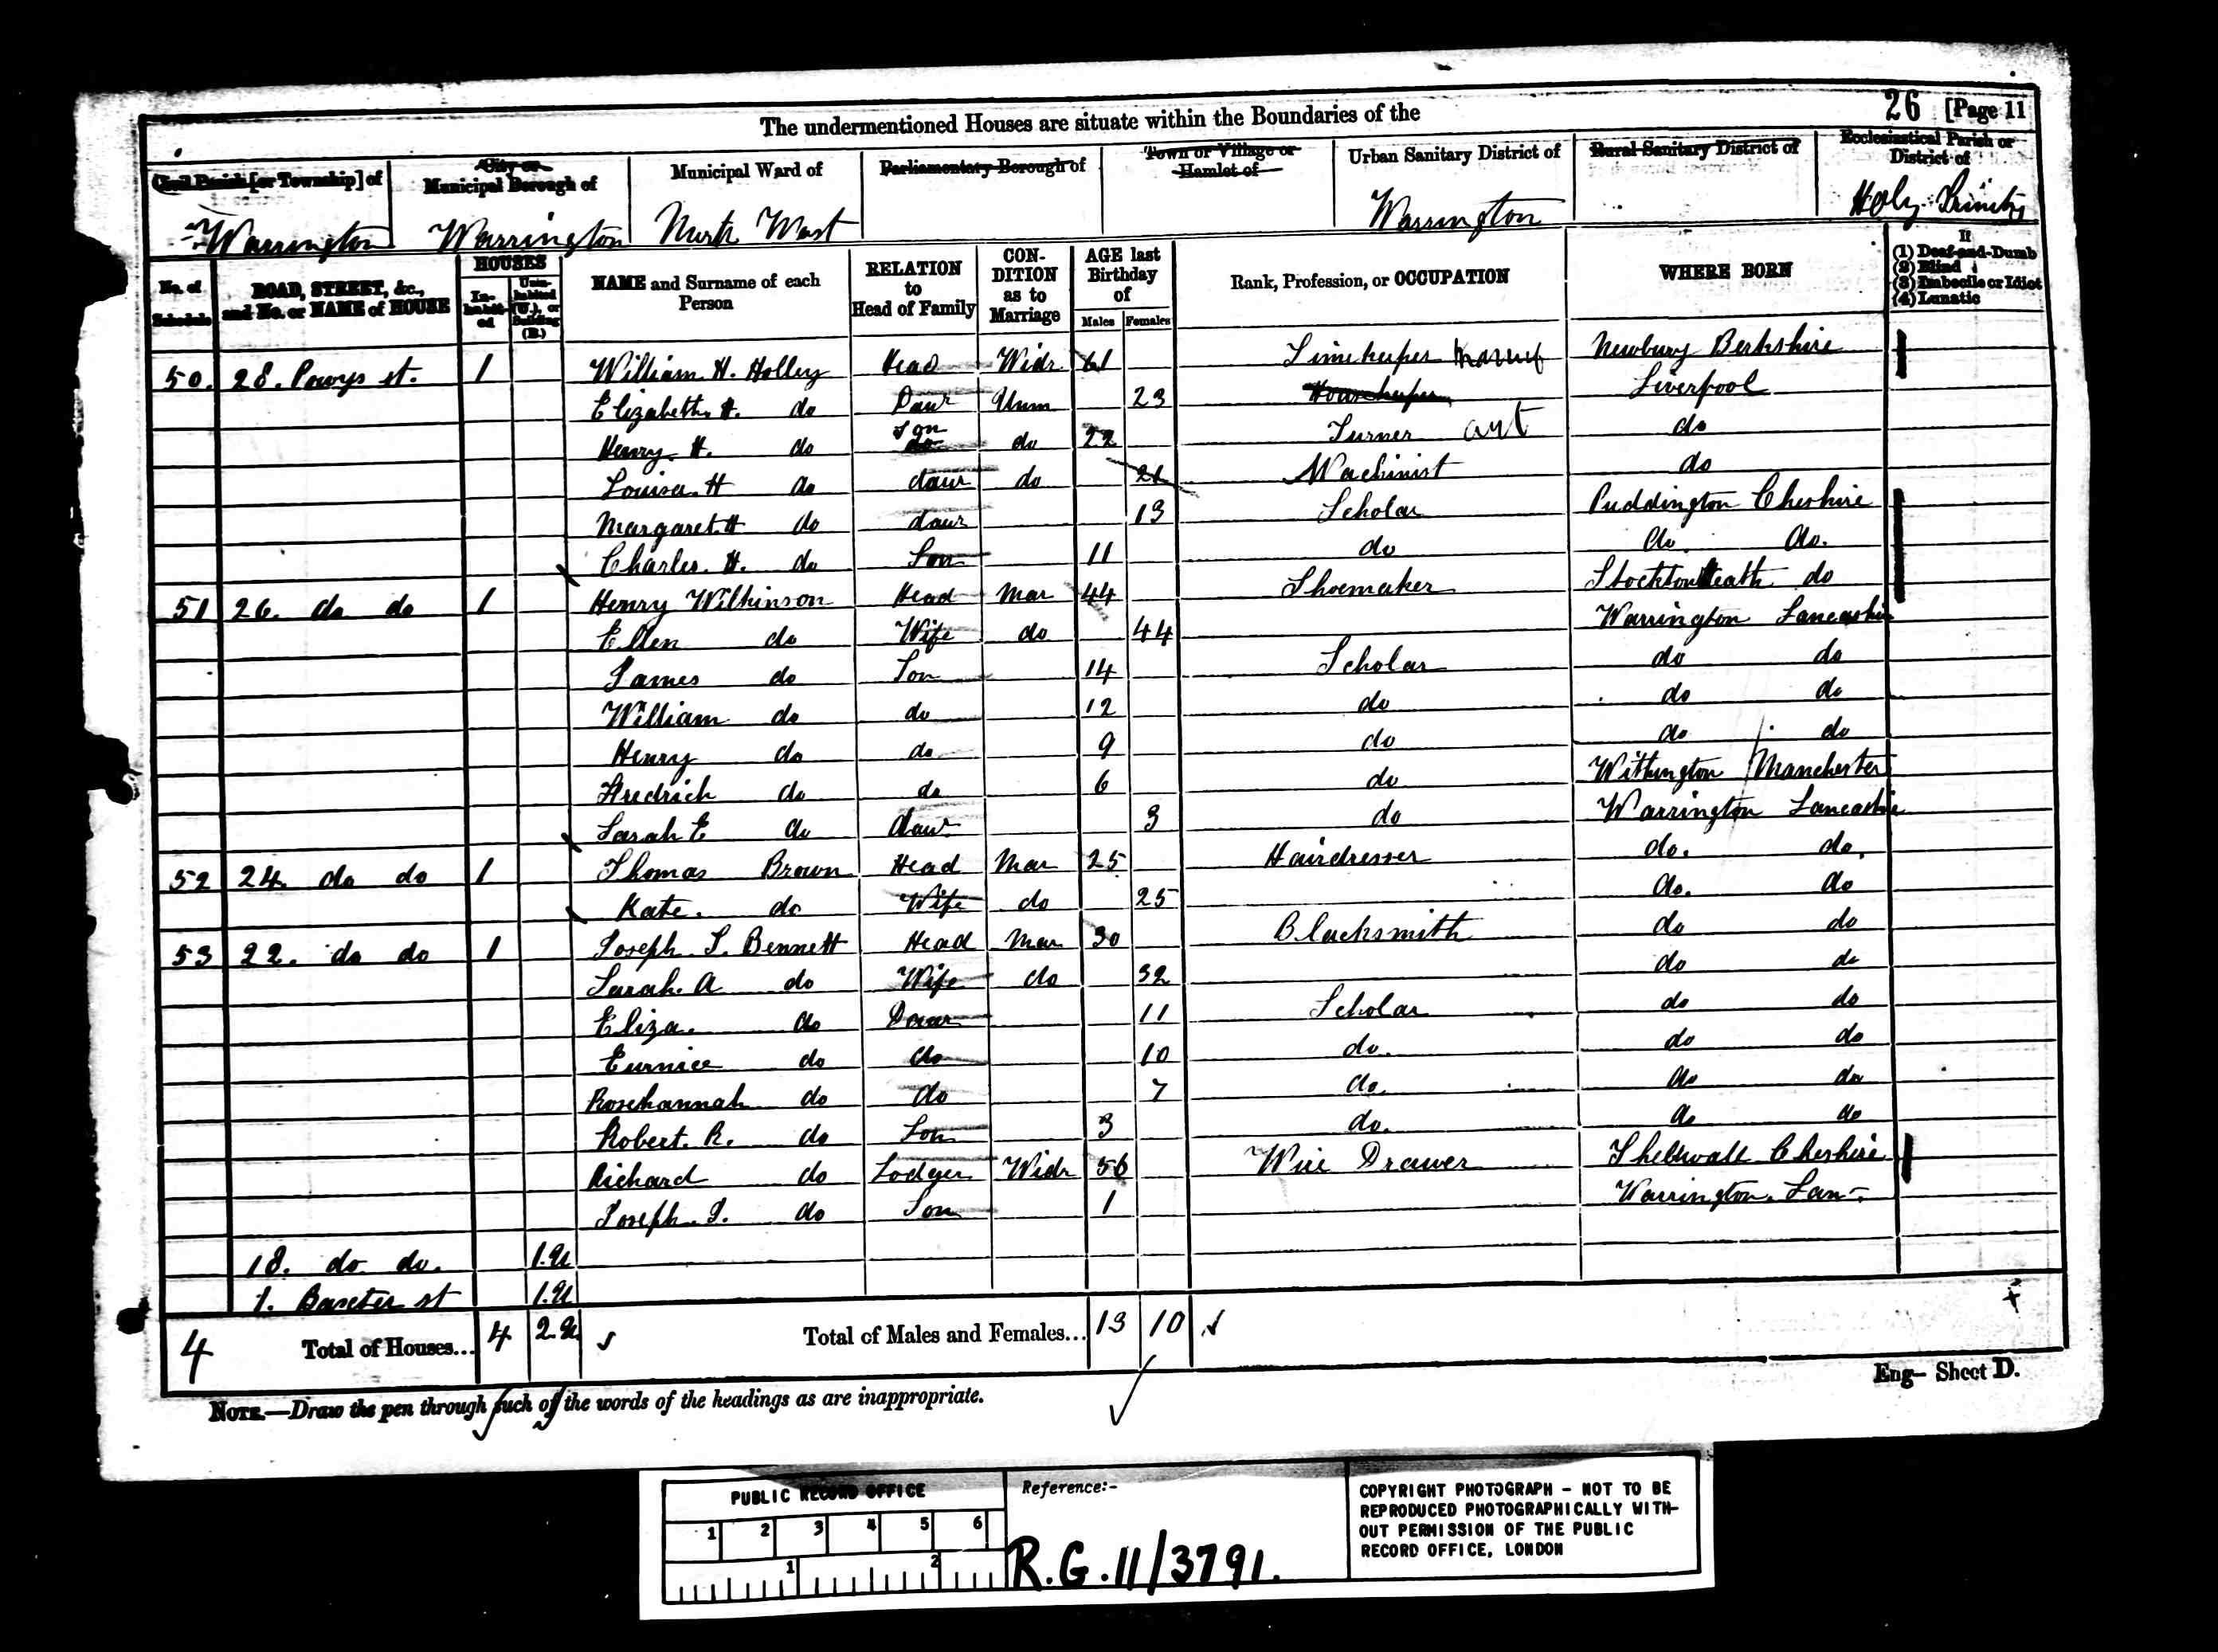 The undermentioned Houses are situate within the Boundaries of the
26 [Page 11
Civil Parish [or Township] of
City or Municipal Borough of
Municipal Ward of
Parliamentary Borough of
Town or Village or Hamlet of
Urban Sanitary District of
Rural Sanitary District of
Ecclesiastical Parish or District of
Warrington Warrington North West Warrington Holy Trinity
No. of Schedule
ROAD, STREET, &c., and No. or NAME of HOUSE
HOUSES
In-habit-ed
Unin-habited (U.), or Building (B.)
NAME and Surname of each Person
RELATION to Head of Family
CON-DITION as to Marriage
AGE last Birthday of
Males Females
Rank, Profession, or OCCUPATION
WHERE BORN
If
(1) Deaf-and-Dumb
(2) Blind
(3) Imbecile or Idiot
(4) Lunatic
50. 28. Powys st. 1 William H. Holley Head Widr 61 Timekeeper Newbury Berkshire
Elizabeth H. do Daur Unm 23 Housekeeper Liverpool
Henry H. do Son do 22 Turner do
Louisa H do daur do 21 Machinist do
Margaret H do daur 13 Scholar Puddington Cheshire
Charles. H. do Son 11 do do. do.
51 26. do do 1 Henry Wilkinson Head Mar 44 Shoemaker Stockton Heath do
Ellen do Wife do 44 Warrington Lancashire
James do Son 14 Scholar do do
William do do 12 do do do
Henry do do 9 do do do
Fredrick do do 6 do Withington Manchester
Sarah E do daur 3 do Warrington Lancashire
52 24 do do 1 Thomas Brown Head Mar 25 Hairdresser do. do.
Kate. do Wife do 25 do. do
53 22. do do 1 Joseph J. Bennett Head Mar 30 Blacksmith do do
Sarah. A do Wife do 32 do do
Eliza. do Daur 11 Scholar do do
Eurnice do do 10 do. do do
Rosehannah do do 7 do. do do
Robert. R. do Son 3 do. do do
Richard do Lodger Widr 56 Wire Drawer Thelwall Cheshire
Joseph. J. do Son 1 Warrington. Lan-
18. do do. 1.U
1. Baxter st 1.U
4 Total of Houses... 4 2.U Total of Males and Females... 13 10
NOTE.—Draw the pen through such of the words of the headings as are inappropriate.
Eng- Sheet D.
PUBLIC RECORD OFFICE
1 2 3 4 5 6
1 2
Reference:-
R.G. 11/3791.
COPYRIGHT PHOTOGRAPH - NOT TO BE
REPRODUCED PHOTOGRAPHICALLY WITH-
OUT PERMISSION OF THE PUBLIC
RECORD OFFICE, LONDON